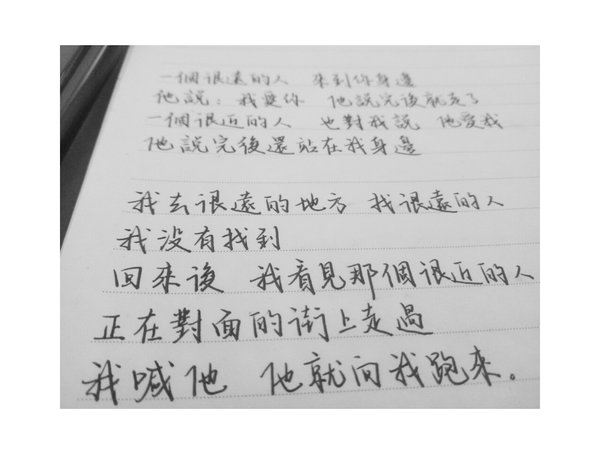 一個很遠的人 來到你身邊
他說：我愛你 他說完後就走了
一個很近的人 也對我說 他愛我
他說完後還站在我身邊
我去很遠的地方 找很遠的人
我沒有找到
回來後 我看見那個很近的人
正在對面的街上走過
我喊他 他就向我跑來。